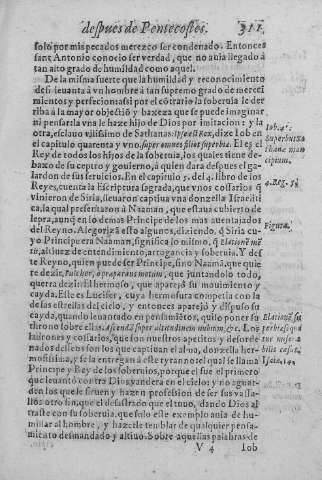 despues de Pentecostes. 311
solo por mis pecados merezco ser condenado. Entonces
sant Antonio conocio ser verdad, que no auia llegado à
tan alto grado de humildad como aquel.
De la misma suerte que la humildad y reconocimiento
desi leuanta à vn hombre à tan supremo grado de mereci
mientos y perfecion assi por el cõtrario la soberuia le der
riba à la mayor objectiõ y baxeza que se puede imaginar,
ni pensar la vna le haze hijo de Dios por imitacion: y la
otra, esclauo vilissimo de Sathanas: Ipse est Rex, dize Iob en
el capitulo quarenta y vno. super omnes filios superbiæ. El es el
Rey de todos los hijos de la soberuia, los quales tiene de-
baxo de su cetro y gouierno, à quien dara despues el ga-
lardon de sus seruicios. En el capitulo 5. del 4. libro de los
Reyes, cuenta la Escriptura sagrada, que vnos cossarios q̃
vinieron de Siria, lleuaron captiua vna donzella Israeliti
ca, la qual presentaron à Naaman, que estaua cubierto de
lepra, aunq̃ en lo demas Principe de los mas auentajados
del Reyno. Alegorizã esto algunos, diziendo. q̃ Siria cu-
yo Principe era Naaman, significa lo mismo, q̃ Elatione mẽ
tis, altiuez de entendimiento, arrogancia y soberuia. Y des
te Reyno, quien puede ser Principe, sino Naamã, que quie
re dezir, Pulchor, & præparans motum, que juntandolo todo,
querra dezir el hermoso, que aparejò su mouimiento y
cayda. Este es Lucifer, cuya hermosura competia con la
de las estrellas del cielo, y entonces aparejò y dispuso su
cayda, quando leuantado en pensamiẽtos, quiso poner su
throno sobre ellas. Ascendã super altitudinem nubium, &c. Los
ladrones y cossarios, que son nuestros apetitos y desorde
nados desseos son los que captiuan el alma, donzella her-
mosissima, y se la entregan à este tyranno tel qual se llama
Principe y Rey de los soberuios, porque el fue el primero
que leuantò contra Dios vandera en el cielo: y no aguar-
den los que le siruen y hazen profession de ser sus vassa-
llos otro fin, que el desastrado que el tuuo, dando Dios al
traste con su soberuia, que solo este exemplo auia de hu-
millar al hombre, y hazerle temblar de qualquier pensa-
miento desmandado y altiuo. Sobre aquellas palabras de
V 4 Iob
Iob. 4
Superbus sa
cipium.
4. Reg. 5.
Figura.
Elatione su
Isaia. 14.